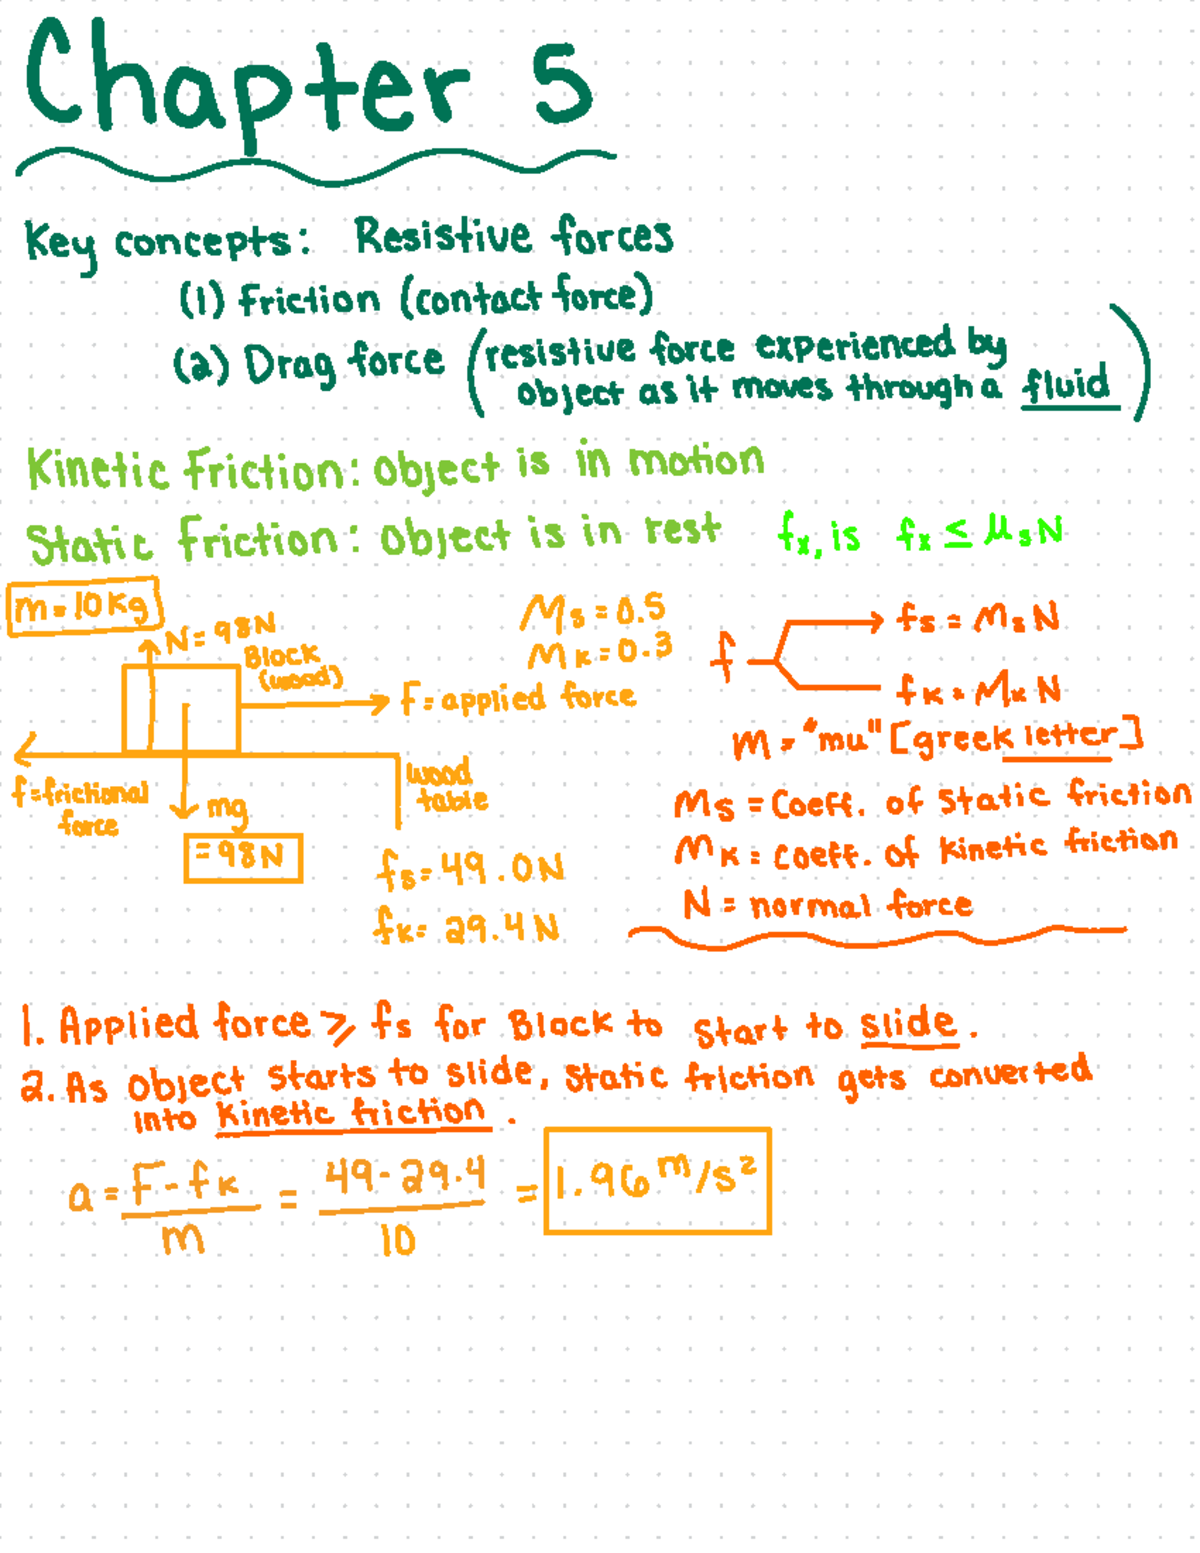 Chapter 5
Key concepts: Resistive forces
(1) Friction (contact force)
(2) Drag force (resistive force experienced by
object as it moves through a fluid)
Kinetic Friction: Object is in motion
Static Friction: Object is in rest fx, is fx ≤ μsN
m = 10 Kg
N = 98N
Block
(wood)
F = applied force
Ms = 0.5
Mk = 0.3
f
fs = Ms N
fk = Mk N
M = "mu" [greek letter]
f = frictional
force
mg
= 98N
wood
table
fs = 49.0N
fk = 29.4 N
Ms = Coeff. of static friction
Mk = Coeff. of kinetic friction
N = normal force
1. Applied force ≥ fs for Block to start to slide.
2. As object starts to slide, static friction gets converted
into kinetic friction.
a = F - fk / m = 49 - 29.4 / 10 = 1.96 m/s²